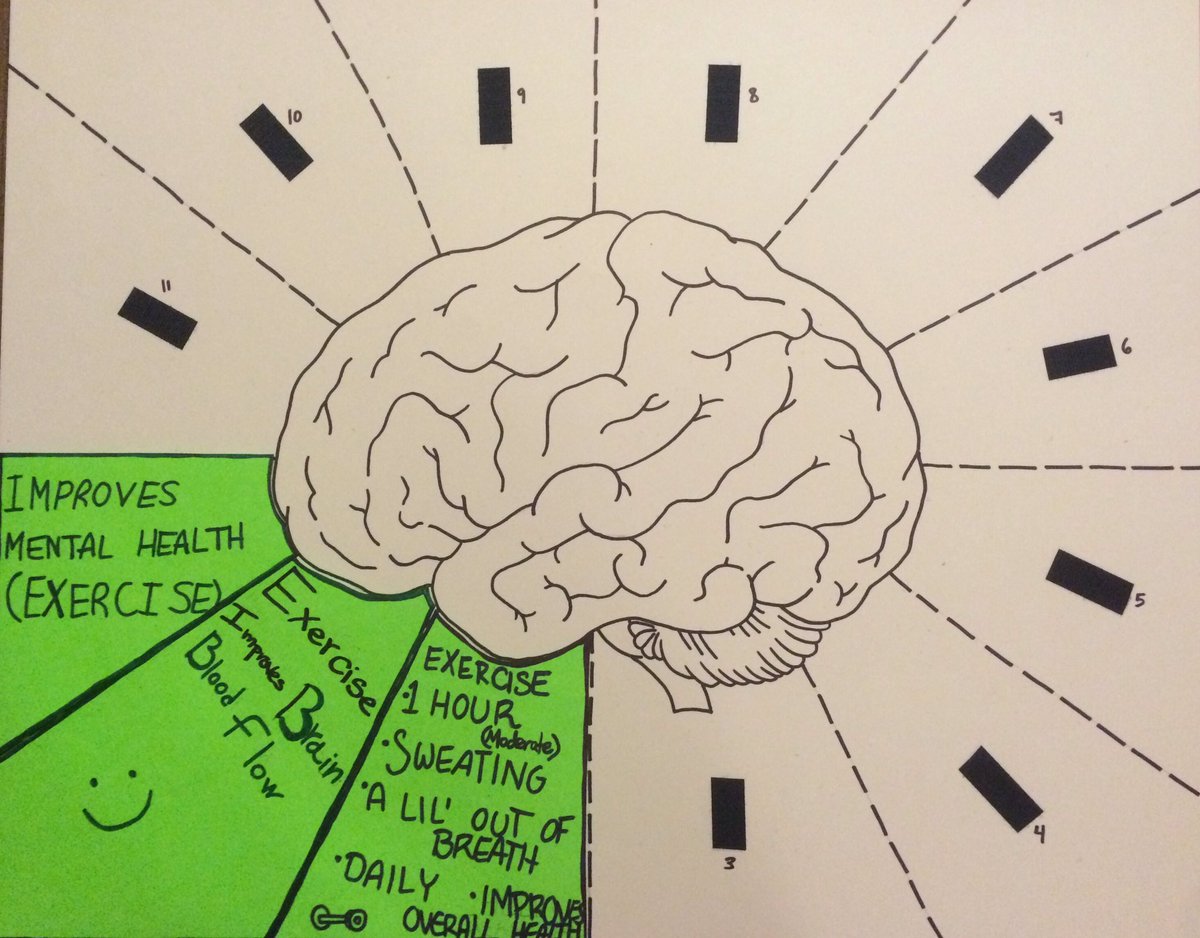 10
9
8
7
11
6
5
4
3
IMPROVES
MENTAL HEALTH
(EXERCISE)
Exercise
Improves Brain
Blood flow
EXERCISE
·1 HOUR
(Moderate)
·SWEATING
·A LIL' OUT OF
BREATH
·DAILY ·IMPROVES
OVERALL HEALTH